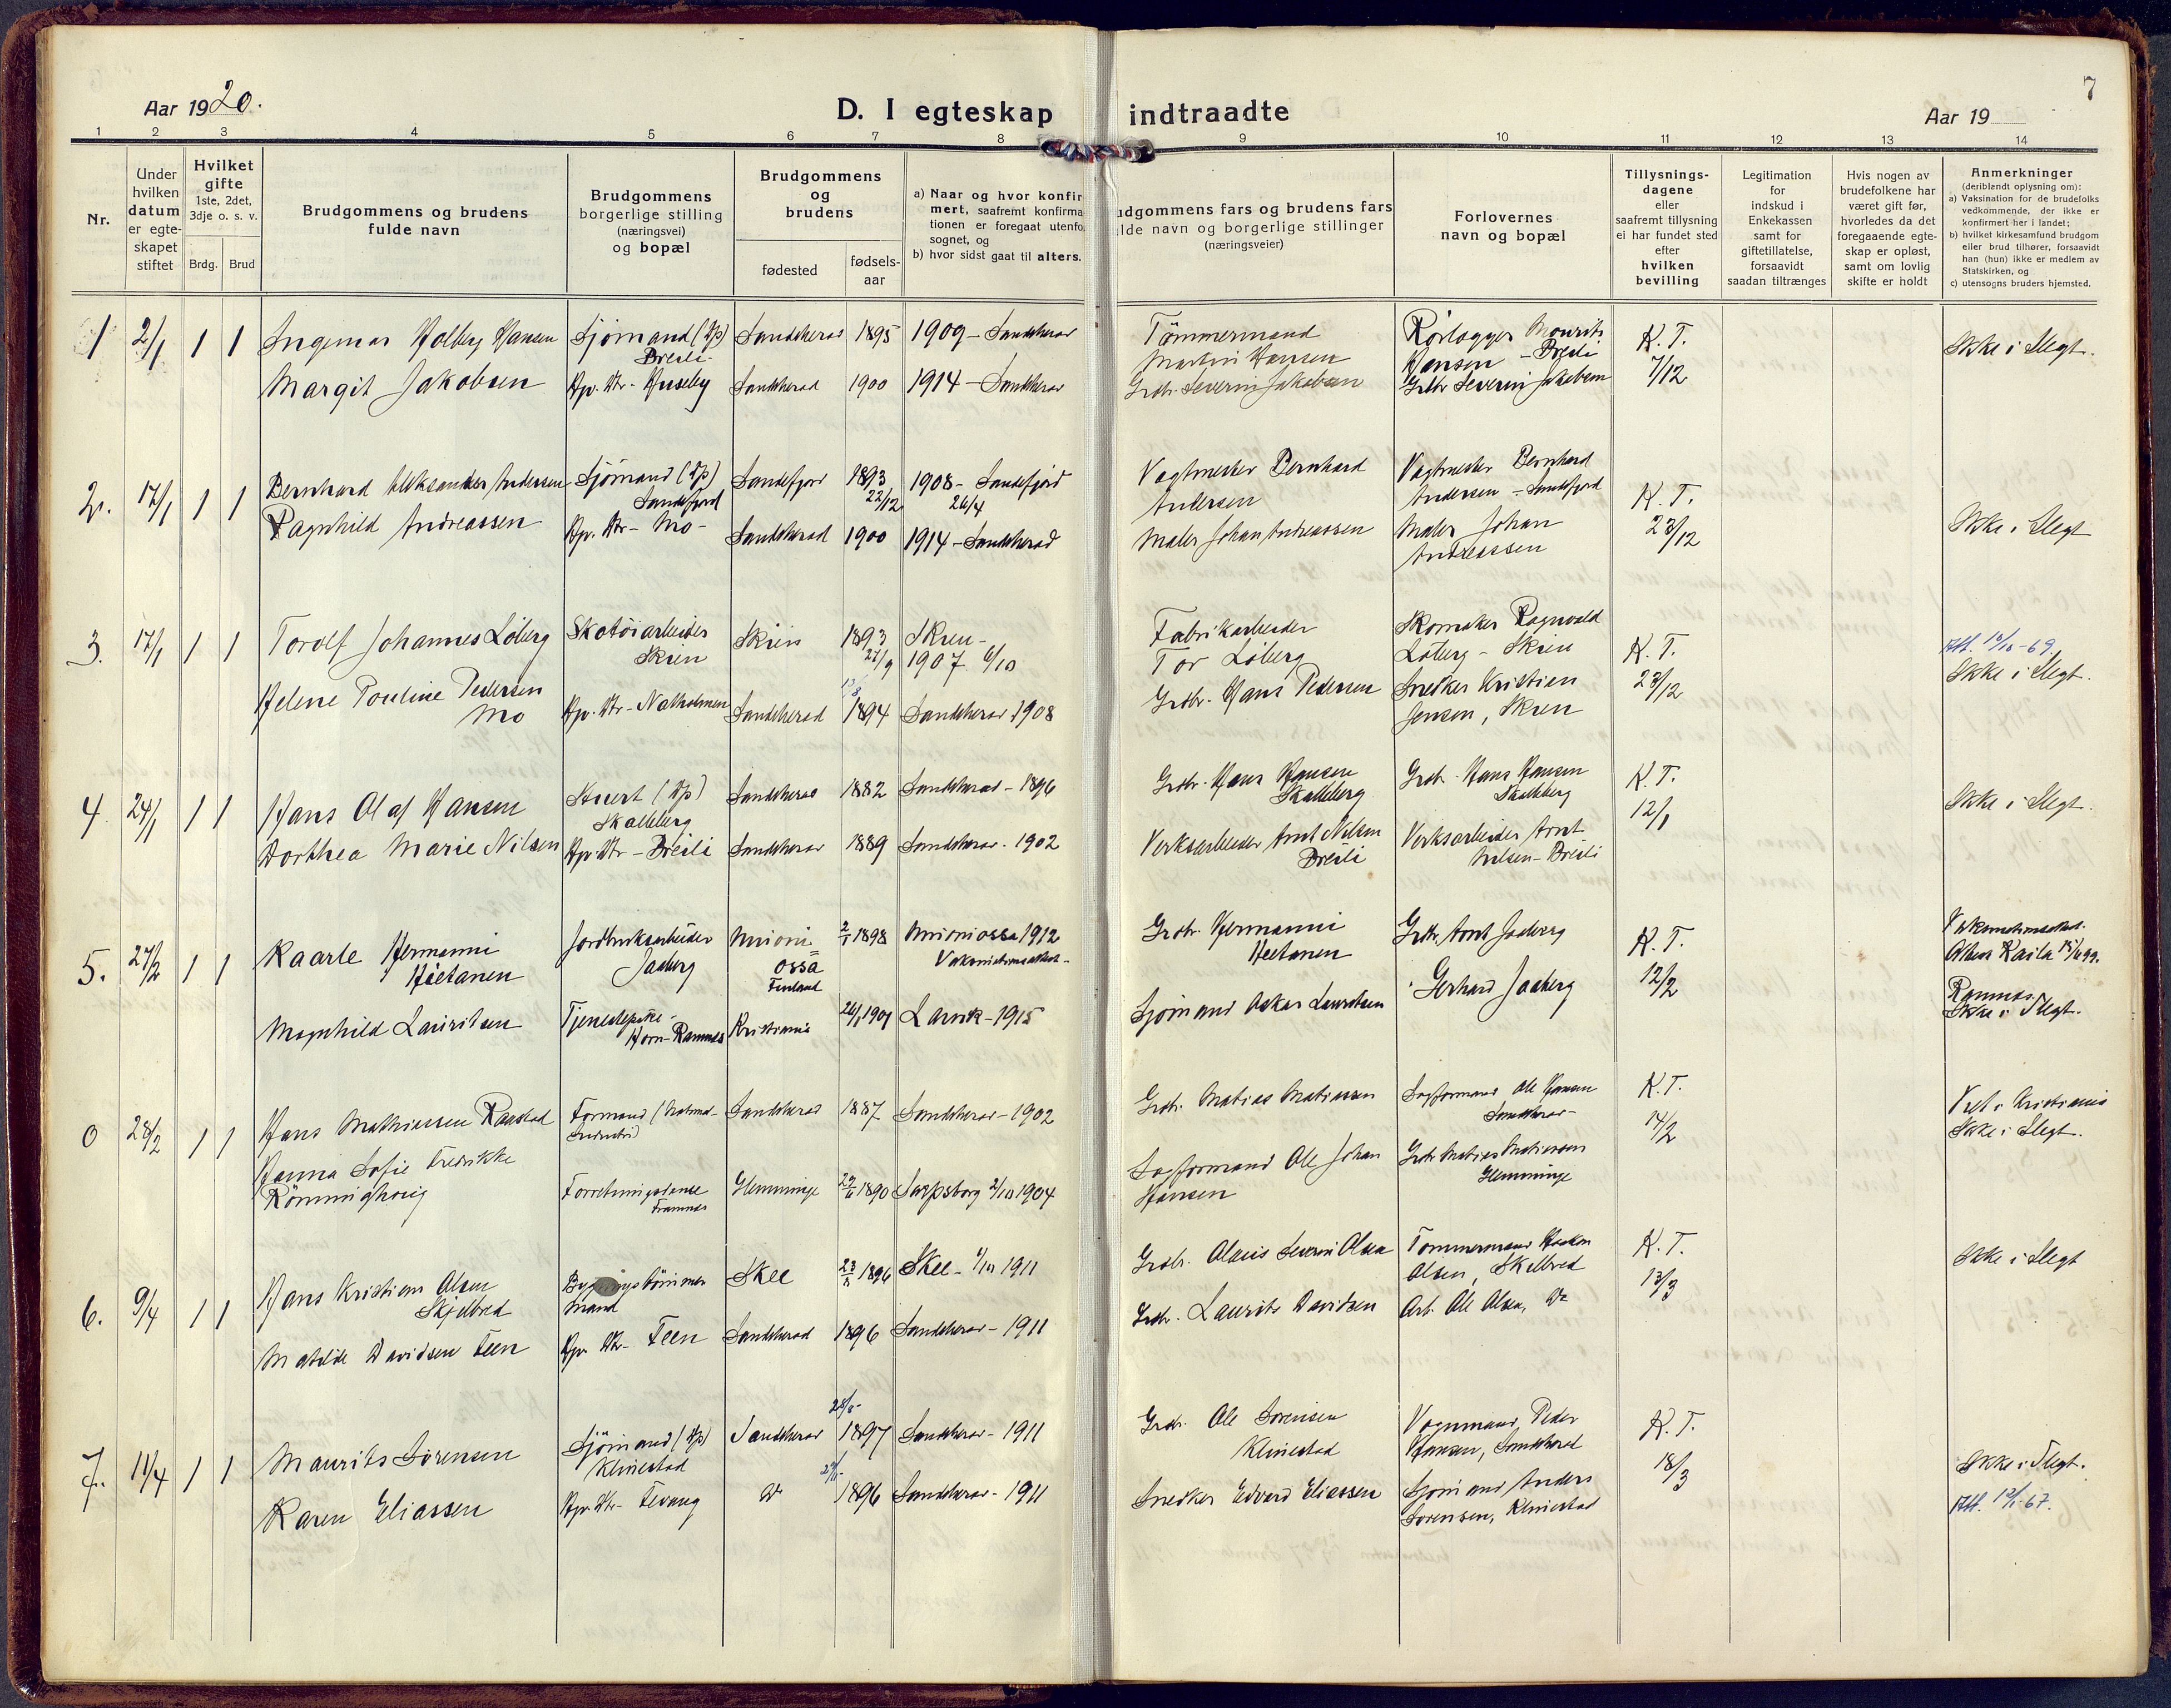 7
Aar 1920.
D. I egteskap indtraadte
Aar 19
1 2 3 4 5 6 7 8 9 10 11 12 13 14
Nr.
Under
hvilken
datum
er egte-
skapet
stiftet
Hvilket
gifte
1ste, 2det,
3dje o. s. v.
Brdg. Brud
Brudgommens og brudens
fulde navn
Brudgommens
borgerlige stilling
(næringsvei)
og bopæl
Brudgommens
og
brudens
fødested
fødsels-
aar
a) Naar og hvor konfir
mert, saafremt konfirma
tionen er foregaat utenfo
sognet, og
b) hvor sidst gaat til alters.
dgommens fars og brudens fars
lde navn og borgerlige stillinger
(næringsveier)
Forlovernes
navn og bopæl
Tillysnings-
dagene
eller
saafremt tillysning
ei har fundet sted
efter
hvilken
bevilling
Legitimation
for
indskud i
Enkekassen
samt for
giftetillatelse,
forsaavidt
saadan tiltrænges
Hvis nogen av
brudefolkene har
været gift før,
hvorledes da det
foregaaende egte-
skap er opløst,
samt om lovlig
skifte er holdt
Anmerkninger
(deriblandt oplysning om):
a) Vaksination for de brudefolks
vedkommende, der ikke er
konfirmert her i landet;
b) hvilket kirkesamfund brudgom
eller brud tilhører, forsaavidt
han (hun) ikke er medlem av
Statskirken, og
c) utensogns bruders hjemsted.
1 2/1 1 1
Ingemar Holberg Hansen
Margit Jakobsen
Sjömand (Ap)
Breili
Hp. Dtr - Huseby
Sandeherad 1895 1909 - Sandeherad
Sandeherad 1900 1914 - Sandeherad
Tömmermand
Martin Hansen
Grdbr. Severin Jakobsen
Rørlægger Mourits
Hansen - Breili
Grdbr Severin Jakobsen
K. T.
7/12
Ikke i Slegt.
2. 17/1 1 1
Bernhard Aleksander Andersen
Ragnhild Andreassen
Sjömand (Ap)
Sandefjord
Hp. Dtr - Mo -
Sandefjord 1893 22/12 1908 - Sandefjord
26/4
Sandeherad 1900 1914 - Sandeherad
Vagtmester Bernhard
Andersen
Maler Johan Andreassen
Vagtmester Bernhard
Andersen - Sandefjord
Maler Johan
Andreassen
K. T.
23/12
Ikke i Slegt
3. 17/1 1 1
Torolf Johannes Løberg
Helene Pouline Pedersen
Mo
Skotöiarbeider
Skien
Hp. Dtr - Natholmen
Skien 1893 27/9 Skien -
1907 6/10
Sandeherad 1894 Sandeherad 1908
Fabrikarbeider
Tor Löberg
Grdbr. Hans Pedersen
Skomaker Ragnvald
Löberg - Skien
Snedker Kristian
Jensen, Skien
K. T.
23/12
Att. 10/10-69
Ikke i Slegt.
4 24/1 1 1
Hans Olaf Hansen
Dorthea Marie Nilsen
Stuert (Ap)
Skalleberg
Hp Dtr - Breili
Sandeherad 1882 Sandeherad - 1896
Sandeherad 1889 Sandeherad - 1902
Grdbr. Hans Hansen
Skalleberg
Verksarbeider Arnt Nilsen
Breili
Grdb. Hans Hansen
Skalleberg
Verksarbeider Arnt
Nilsen - Breili
K. T.
12/1
Ikke i Slegt.
5. 27/2 1 1
Kaarle Hermanni
Hietanen
Magnhild Lauritsen
Jordbruksarbeider
Jaaberg
Tjenestepike -
Horn - Ramnes
Finland
2/1 1898
Kristiania 26/1 1901 Larvik - 1915
Grdbr. Hermanni
Hietanen
Sjömand Oskar Lauritsen
Grdbr. Arnt Jaaberg
Gerhard Jaaberg
K. T.
12/2
Ramnes
Ikke i Slegt.
0 28/2 1 1
Hans Mathiessen Raastad
Hanna Sofie Fredrikke
Römminghovig
Forretningsdame
Framnes
Sandeherad 1887 Sandeherad - 1902
Glemminge 29/6 1890 Sarpsborg 2/10 1904
Grdbr. Matias Matiassen
Sagformand Ole Johan
Hansen
Sagformand Ole Hansen
Sandeherad -
Grdbr Matias Matiassen
Glemminge
K. T.
14/2
Viet i Kristiania
Ikke i Slegt.
6. 9/4 1 1
Hans Kristian Olsen
Skjelbred
Matilde Davidsen Feen
Bygningstömmer
mand
Hp. Dtr - Feen
Skee 23/2 1896 Skee - 1/10 1911
Sandeherad 1896 Sandeherad - 1911
Grdbr. Olaus Severin Olsen
Grdbr. Laurits Davidsen
Tømmermand Haakon
Olsen, Skelbred
Arb. Ole Olsen, Do
K. T.
13/3
Ikke i Slegt
7. 11/4 1 1
Maurits Sørensen
Karen Eliassen
Sjömand (Ap)
Klinestad
Hp. Dtr - Fevang
Sandeherad 28/8- 1897 Sandeherad - 1911
Do 1896 Sandeherad - 1911
Grdbr. Ole Sørensen
Klinestad
Snedker Edvard Eliassen
Vognmand, Peder
Hansen, Sandeherad
Sjömand Anders
Sørensen, Klinestad
K. T.
18/3
Ikke i Slegt.
Att. 10/1-67.